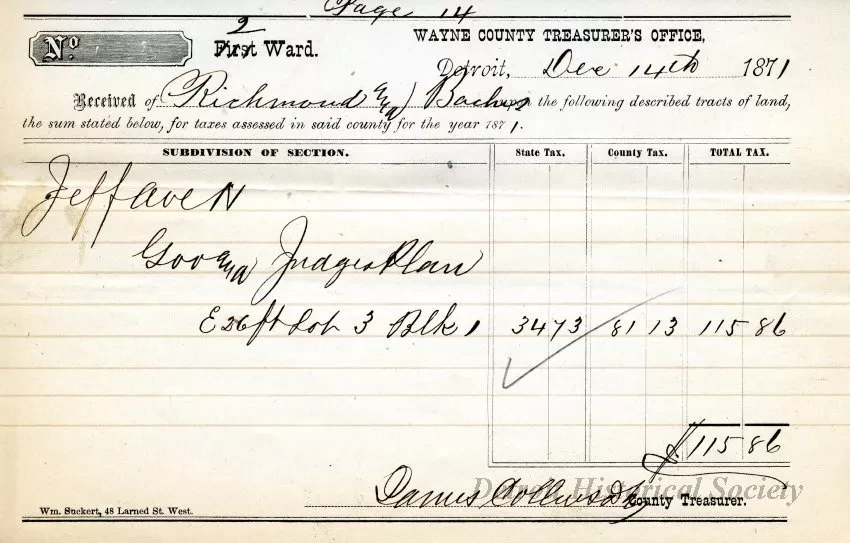 Page 14
No. 2 First Ward. WAYNE COUNTY TREASURER'S OFFICE,
Detroit, Dec 14th 1871
Received of Richmond and Backus upon the following described tracts of land,
the sum stated below, for taxes assessed in said county for the year 1871.
SUBDIVISION OF SECTION. State Tax. County Tax. TOTAL TAX.
Jeff Ave N
Gov and Judges Plan
E 26 ft Lot 3 Blk 1 34 73 81 13 115 86
$ 115 86
James Collins County Treasurer.
Wm. Suckert, 48 Larned St. West.
Detroit Historical Society